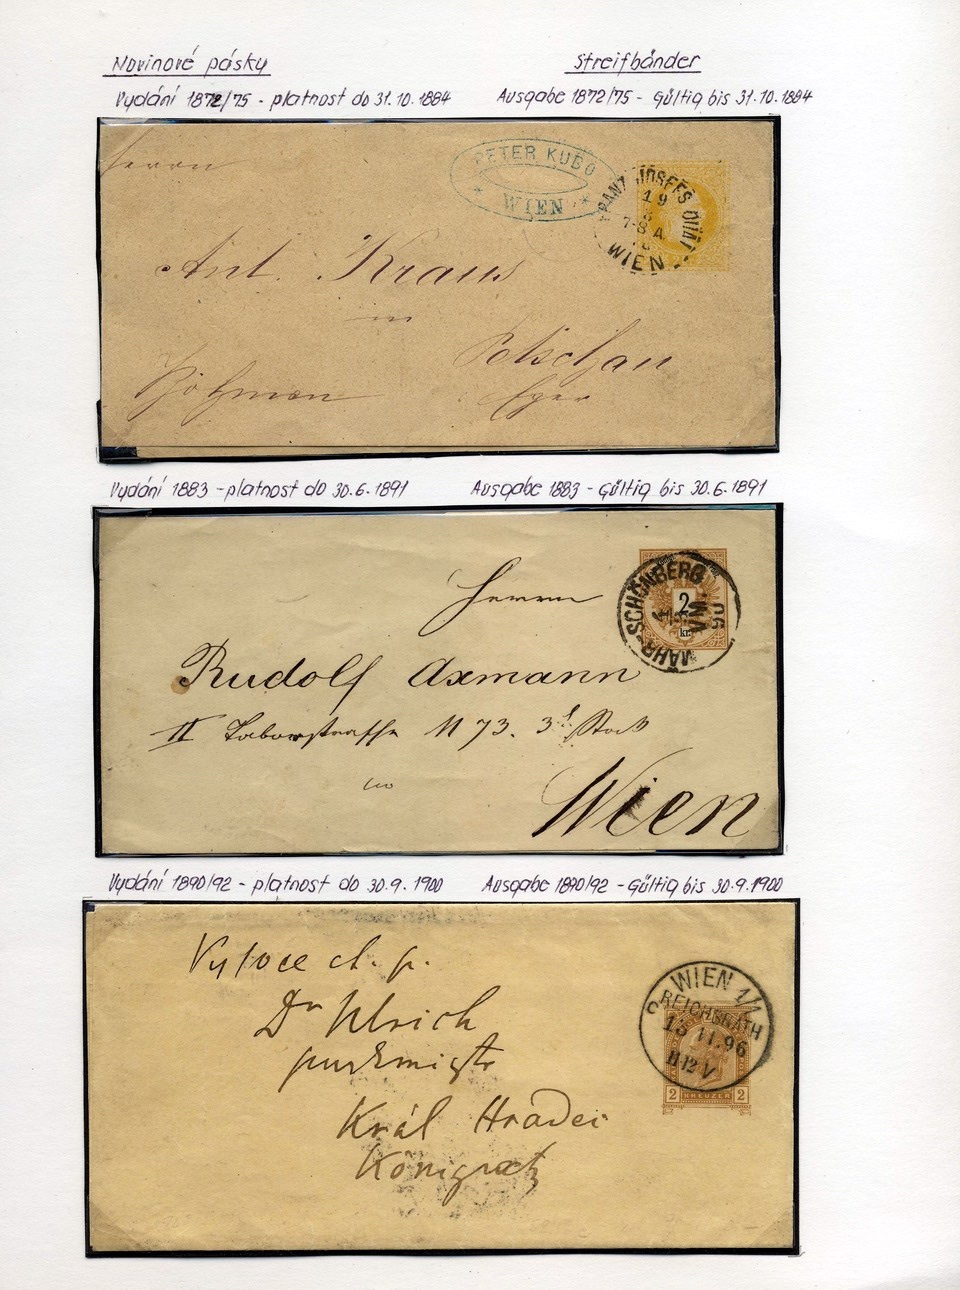 Novinové pásky
Streifbänder
Vydání 1872/75 - platnost do 31.10.1884
Ausgabe 1872/75 - Gültig bis 31.10.1884
Herrn
PETER KUBO
WIEN
FRANZ JOSEFS QUAI
19
7-8 A
WIEN
Ant. Kraus
in
Petschau
Böhmen
Eger
Vydání 1883 - platnost do 30.6.1891
Ausgabe 1883 - Gültig bis 30.6.1891
MÄHR-SCHÖNBERG
2
kr.
VM.
90
Herrn
Rudolf Axmann
II Taborstraße N 73. 3t Stock
Wien
Vydání 1890/92 - platnost do 30.9.1900
Ausgabe 1890/92 - Gültig bis 30.9.1900
WIEN 1/1
REICHSRATH
13 11.96
11-12 V
2 KREUZER 2
Vysoce ct. p.
Dr Ulrich
purkmistr
Král Hradci
Königratz